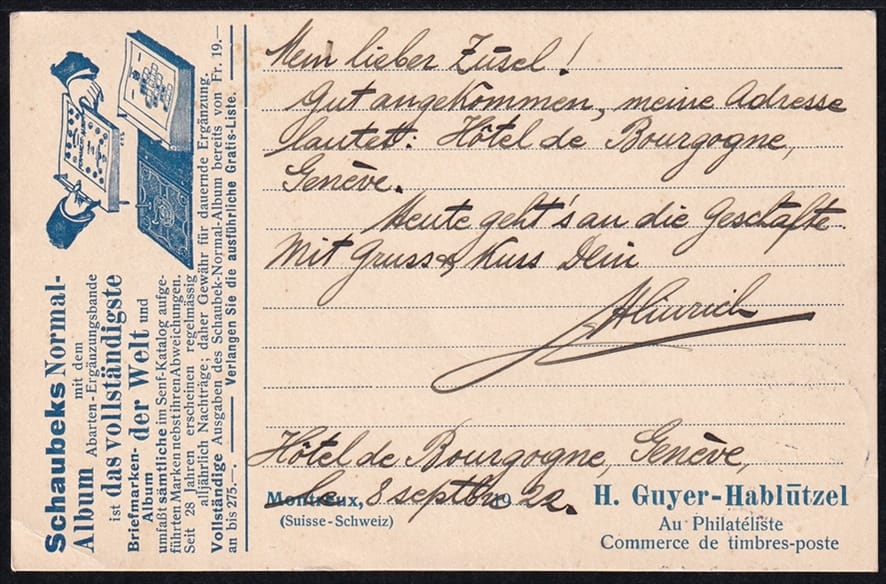 Schaubeks Normal-
Album mit dem
Abarten-Ergänzungsbande
ist das vollständigste
Briefmarken-Album der Welt und
umfaßt sämtliche im Senf-Katalog aufge-
führten Marken nebst ihren Abweichungen.
Seit 28 Jahren erscheinen regelmässig
alljährlich Nachträge; daher Gewähr für dauernde Ergänzung.
Vollständige Ausgaben des Schaubek-Normal-Album bereits von Fr. 19.—
an bis 275.—. Verlangen Sie die ausführliche Gratis-Liste.
Mein lieber Zusel!
Gut angekommen, meine Adresse
lautet: Hôtel de Bourgogne,
Genève.
Heute geht's an die Geschäfte.
Mit Gruss & Kuss Dein
Hinrich
Hôtel de Bourgogne, Genève,
Montreux, le 8 septbre 1922.
(Suisse-Schweiz)
H. Guyer-Hablützel
Au Philatéliste
Commerce de timbres-poste